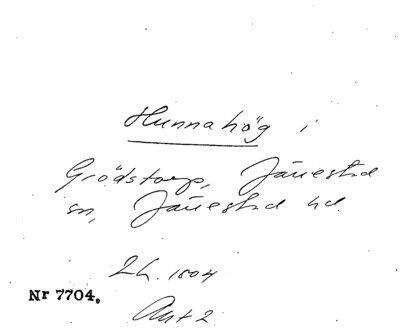 Hunnahög i
Grödstorp, Jäuestad
sn, Jäuestad hd.
LL. 1804
Nr 7704.
Akt 2